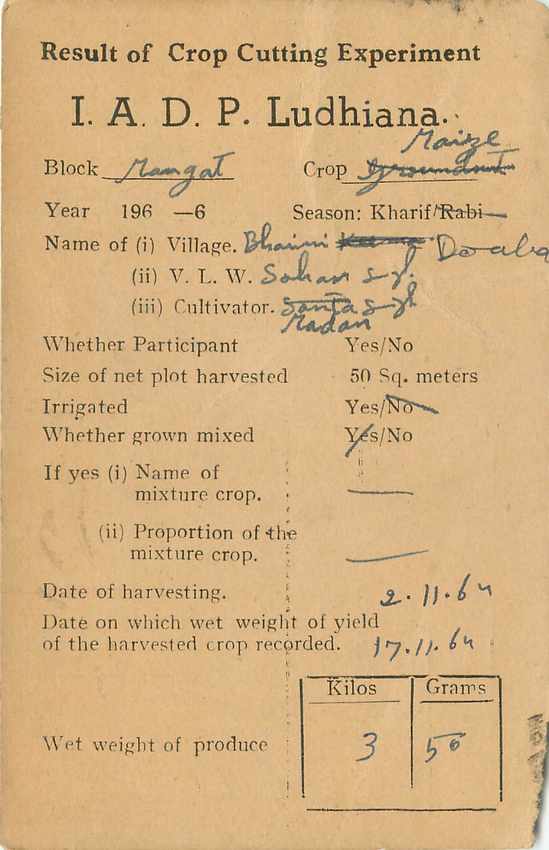 Result of Crop Cutting Experiment
I. A. D. P. Ludhiana.
Maize
Block Mangat Crop Groundnut
Year 196 —6 Season: Kharif/Rabi
Name of (i) Village. Bhaini Doaba
(ii) V. L. W. Sohan Sgh.
(iii) Cultivator. Santa Sgh
Madan
Whether Participant Yes/No
Size of net plot harvested 50 Sq. meters
Irrigated Yes/No
Whether grown mixed Yes/No
If yes (i) Name of
mixture crop. —
(ii) Proportion of the
mixture crop. —
Date of harvesting. 2.11.64
Date on which wet weight of yield
of the harvested crop recorded. 17.11.64
Kilos Grams
Wet weight of produce 3 50